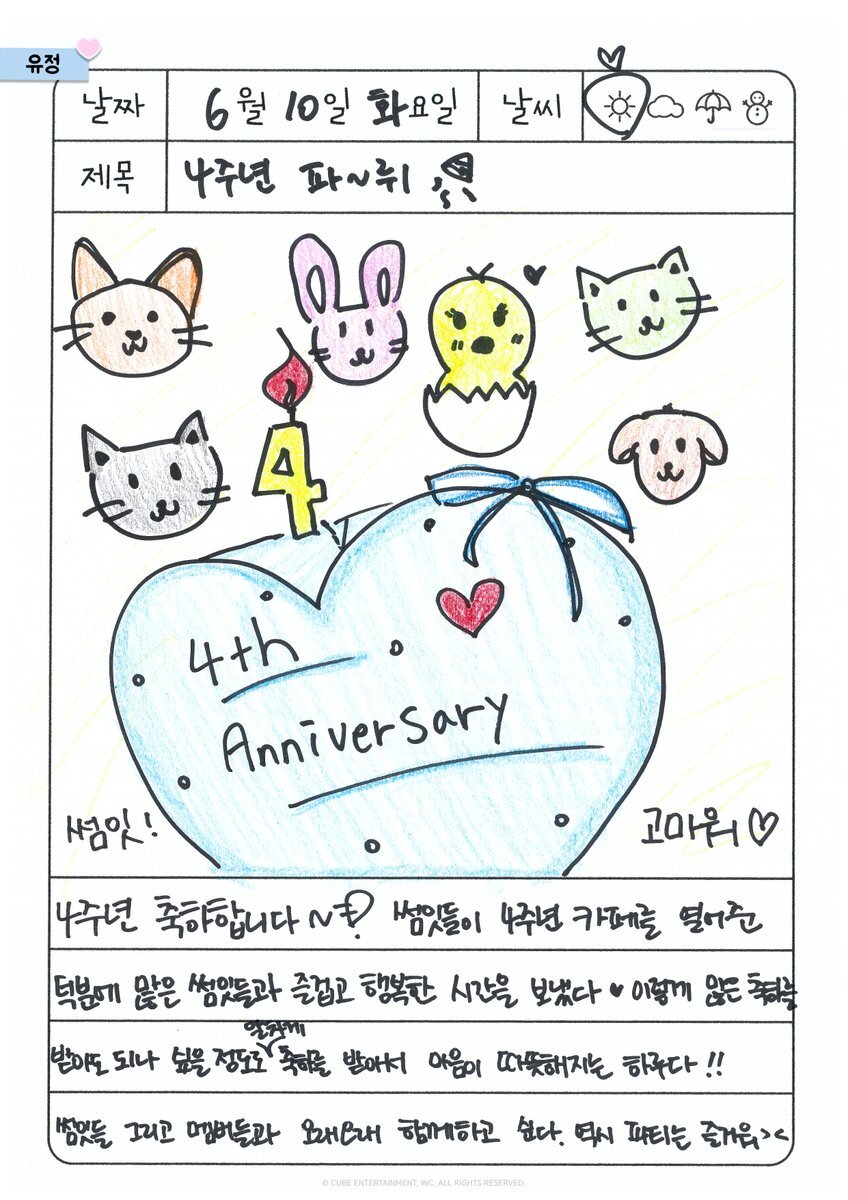 유정
날짜 6월 10일 화요일 날씨
제목 4주년 파~뤼
4
4th
Anniversary
썸잇!
고마워
4주년 축하합니다~ 썸잇들이 4주년 카페를 열어준
턱분에 많은 썸잇들과 즐겁고 행복한 시간을 보냈다 이렇게 많은 축하를
받아도 되나 싶을 정도로 알차게 축하를 받아서 마음이 따뜻해지는 하루다!!
썸잇들 그리고 멤버들과 오래오래 함께하고 싶다. 역시 파티는 즐거워><
© CUBE ENTERTAINMENT, INC. ALL RIGHTS RESERVED.